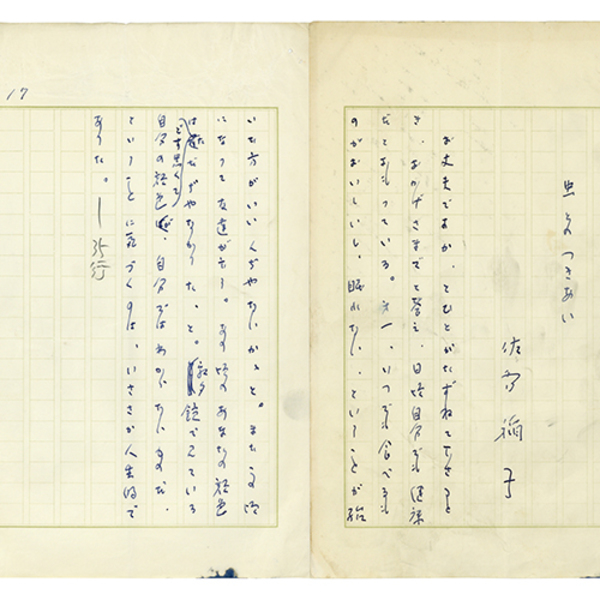 虫とのつきあい
佐多稲子
お丈夫ですか、とひとがたずねて下さると
き、おかげさまでと答え、日頃自分でも健康
だとおもっている。第一、いつでも食べも
のがおいしいし、眠れない、ということが殆
17
いた方がいいんぢゃないか、と。またこの頃
になって友達が云う。あの頃のあなたの顔色
はただぢゃなかった、と。
どす黒くて
鏡で見ている
自分の顔色が、自分ではわからないものだ、
ということに気づくのは、いささか人生的で
あった。
35行